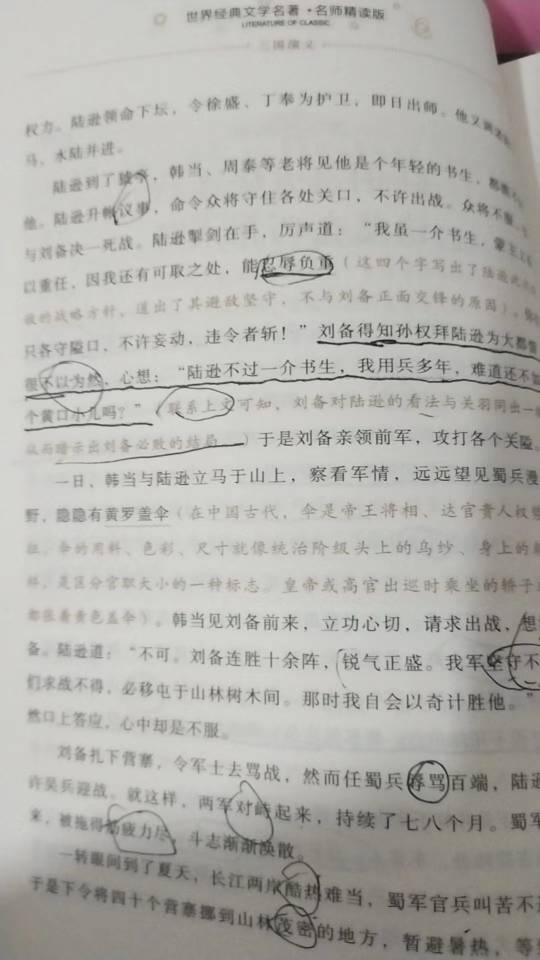 世界经典文学名著·名师精读版
LITERATURE OF CLASSIC
三国演义
权力。陆逊领命下坛，令徐盛、丁奉为护卫，即日出师。他又调
马，水陆并进。
陆逊到了猇亭，韩当、周泰等老将见他是个年轻的书生，都
他。陆逊升帐议事，命令众将守住各处关口，不许出战。众将不服
与刘备决一死战。陆逊掣剑在手，厉声道：“我虽一介书生，蒙主上
以重任，因我还有可取之处，能忍辱负重（这四个字写出了陆逊
敌的战略方针，道出了其避敌坚守，不与刘备正面交锋的原因）。
只各守隘口，不许妄动，违令者斩！”刘备得知孙权拜陆逊为大都督
很不以为然，心想：“陆逊不过一介书生，我用兵多年，难道还不如
个黄口小儿吗？”（联系上文可知，刘备对陆逊的看法与关羽同出一
从而暗示出刘备必败的结局）于是刘备亲领前军，攻打各个关隘。
一日，韩当与陆逊立马于山上，察看军情，远远望见蜀兵漫
野，隐隐有黄罗盖伞（在中国古代，伞是帝王将相、达官贵人权
征，伞的用料、色彩、尺寸就像统治阶级头上的乌纱、身上的
样，是区分官职大小的一种标志。皇帝或高官出巡时乘坐的轿子
都张着黄色盖伞）。韩当见刘备前来，立功心切，请求出战，想
备。陆逊道：“不可。刘备连胜十余阵，锐气正盛。我军坚守不
们求战不得，必移屯于山林树木间。那时我自会以奇计胜他。”
然口上答应，心中却是不服。
刘备扎下营寨，令军士去骂战，然而任蜀兵辱骂百端，陆逊
许吴兵迎战。就这样，两军对峙起来，持续了七八个月。蜀军
来，被拖得筋疲力尽，斗志渐渐涣散。
一转眼间到了夏天，长江两岸酷热难当，蜀军官兵叫苦不
于是下令将四十个营寨挪到山林茂密的地方，暂避暑热，等